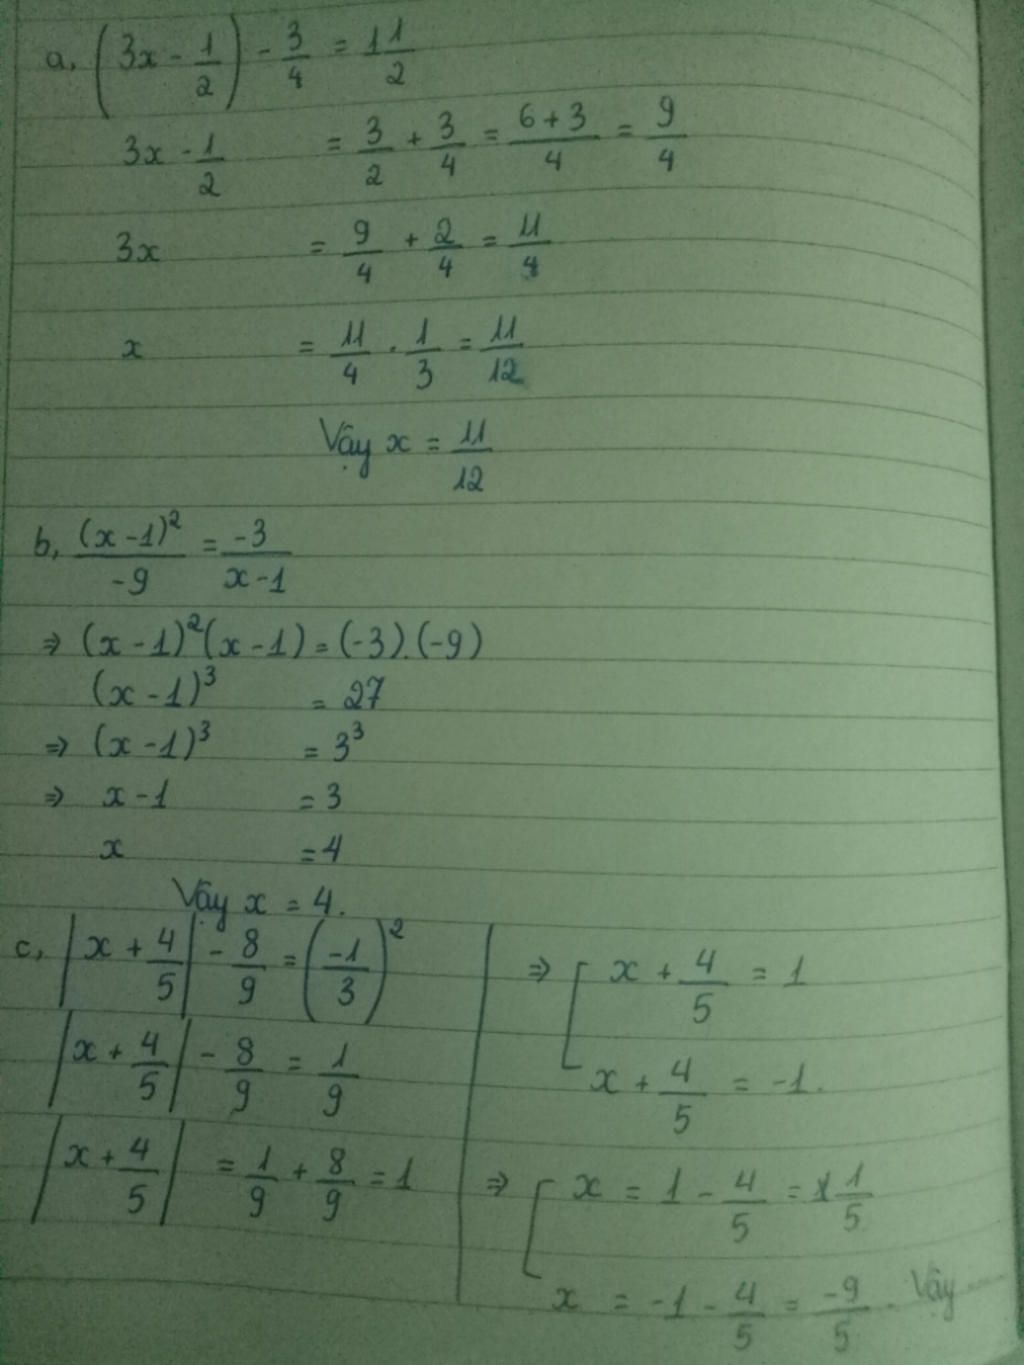 a, (3x - 1/2) - 3/4 = 1 1/2
3x - 1/2 = 3/2 + 3/4 = (6 + 3)/4 = 9/4
3x = 9/4 + 2/4 = 11/4
x = 11/4 . 1/3 = 11/12
Vậy x = 11/12
b, (x - 1)²/-9 = -3/(x - 1)
⇒ (x - 1)²(x - 1) = (-3).(-9)
(x - 1)³ = 27
⇒ (x - 1)³ = 3³
⇒ x - 1 = 3
x = 4
Vậy x = 4.
c, |x + 4/5| - 8/9 = (-1/3)²
|x + 4/5| - 8/9 = 1/9
|x + 4/5| = 1/9 + 8/9 = 1
⇒ [ x + 4/5 = 1
x + 4/5 = -1.
⇒ [ x = 1 - 4/5 = 1/5
x = -1 - 4/5 = -9/5. Vậy ....